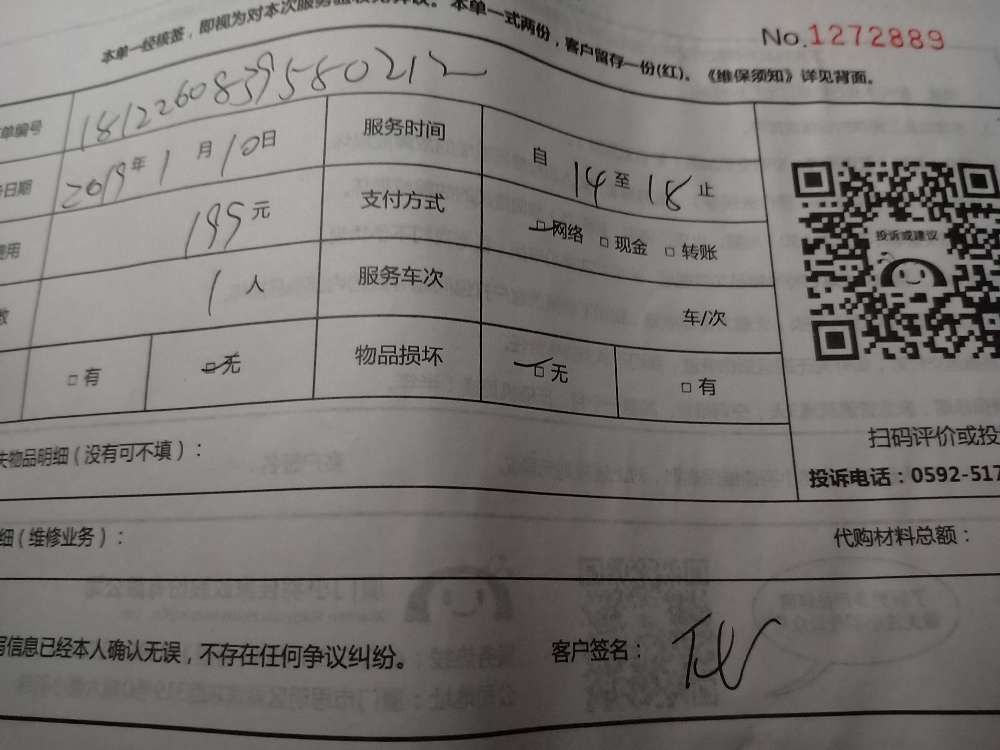 本单一经核签，即视为对本次服务
本单一式两份，客户留存一份(红)。《维保须知》详见背面。
No.1272889
单编号 1812260839580212
日期 2019年1月10日 服务时间 自 14 至 18 止
用 195元 支付方式 网络 □现金 □转账
数 1人 服务车次 车/次
□有 □无 物品损坏 □无 □有
投诉或建议
扫码评价或投
失物品明细（没有可不填）：
投诉电话：0592-517
细（维修业务）： 代购材料总额：
写信息已经本人确认无误，不存在任何争议纠纷。 客户签名：